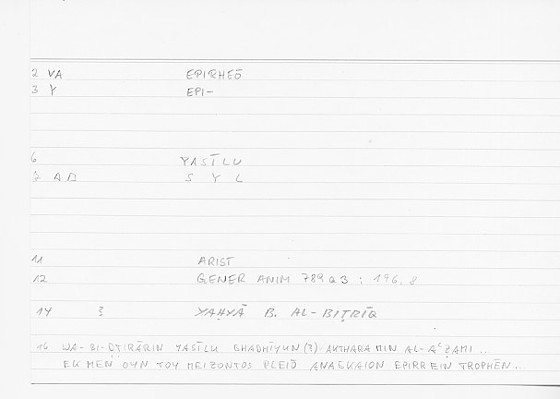 2 VA EPIRHEŌ
3 Y EPI-
6 YASĪLU
7 AD S Y L
11 ARIST
12 GENER ANIM 789a3 : 196,8
14 3 YAḤYĀ B. AL-BIṬRĪQ
16 WA-BI-ḌṬIRĀRIN YASĪLU ĠHADHĪYUN (3) AKTHARA MIN AL-AʿẒAMI ..
EK MEN OYN TOY MEIZONTOS PLEIŌ ANAGKAION EPIRREIN TROPHĒN.